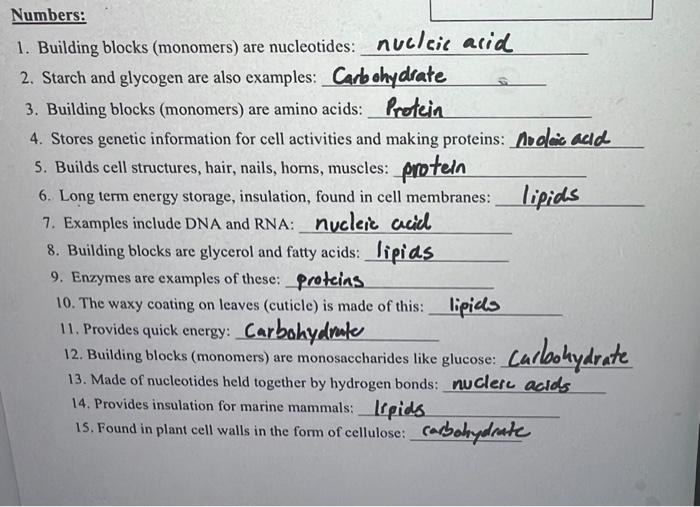 Numbers:
1. Building blocks (monomers) are nucleotides: nucleic acid
2. Starch and glycogen are also examples: Carbohydrate
3. Building blocks (monomers) are amino acids: Protein
4. Stores genetic information for cell activities and making proteins: Nucleic acid
5. Builds cell structures, hair, nails, horns, muscles: protein
6. Long term energy storage, insulation, found in cell membranes: lipids
7. Examples include DNA and RNA: nucleic acid
8. Building blocks are glycerol and fatty acids: lipids
9. Enzymes are examples of these: proteins
10. The waxy coating on leaves (cuticle) is made of this: lipids
11. Provides quick energy: Carbohydrate
12. Building blocks (monomers) are monosaccharides like glucose: Carbohydrate
13. Made of nucleotides held together by hydrogen bonds: nucleic acids
14. Provides insulation for marine mammals: lipids
15. Found in plant cell walls in the form of cellulose: carbohydrate